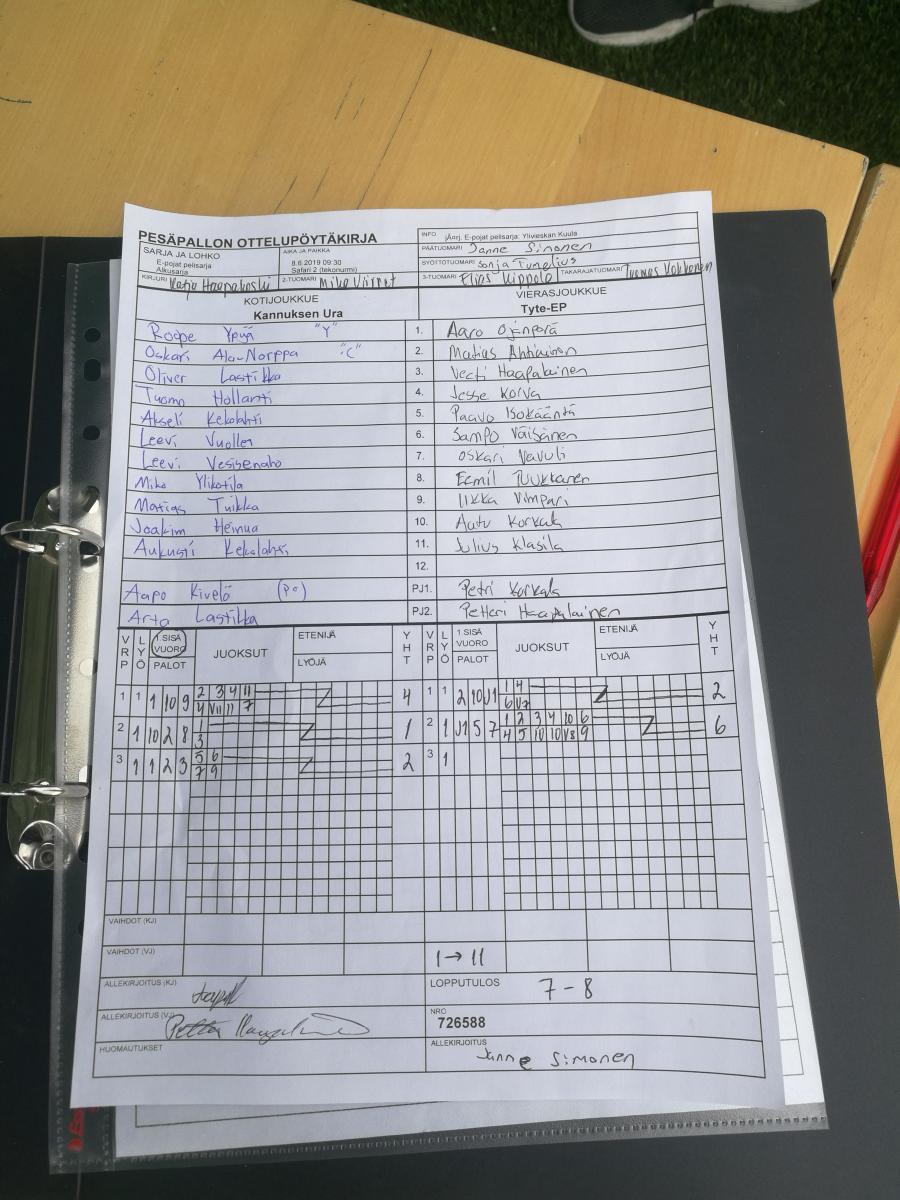 PESÄPALLON OTTELUPÖYTÄKIRJA
INFO jÄorj. E-pojat pelisarja: Ylivieskan Kuula
PÄÄTUOMARI Janne Simonen
SARJA JA LOHKO
E-pojat pelisarja
Alkusarja
AIKA JA PAIKKA
8.6.2019 09:30
Safari 2 (tekonurmi)
SYÖTTÖTUOMARI Sonja Tumelius
KIRJURI Katja Haapakoski 2-TUOMARI Mika 3-TUOMARI TAKARAJATUOMARI Tuomas
KOTIJOUKKUE VIERASJOUKKUE
Kannuksen Ura Tyte-EP
Roope Ypyä "Y" 1. Aaro Ojanperä
Oskari Ala-Norppa "C" 2. Matias Ahtiainen
Oliver Lastikka 3. Veeti Haapalainen
Tuomo Hollanti 4. Jesse Korva
Akseli Kekolahti 5. Paavo Isokääntä
Leevi Vuolle 6. Sampo Väisänen
Leevi Vesisenaho 7. Oskari Vavuli
Miko Ylikotila 8. Eemil Tuukkanen
Matias Tuikka 9. Iikka Vimpari
Joakim Heinua 10. Aatu Korkala
Aukusti Kekolahti 11. Julius Klasila
12.
Aapo Kivelä (po) PJ1. Petri Korkala
Arto Lastikka PJ2. Petteri Haapalainen
VRP LYÖ 1 SISÄ VUORO PALOT JUOKSUT ETENIJÄ LYÖJÄ YHT VRP LYÖ 1 SISÄ VUORO PALOT JUOKSUT ETENIJÄ LYÖJÄ YHT
1 1 1 10 9 2 3 4 11 4 1 1 2 10 J1 1 4 2
4 V11 11 7 6 V7
2 1 10 2 8 1 1 2 1 J1 5 7 1 2 3 4 10 6 6
3 4 5 10 10 V8 9
3 1 1 2 3 5 6 2 3 1
7 9
VAIHDOT (KJ)
VAIHDOT (VJ) 1→11
ALLEKIRJOITUS (KJ) LOPPUTULOS 7-8
ALLEKIRJOITUS (VJ) NRO
726588
HUOMAUTUKSET ALLEKIRJOITUS
Janne Simonen